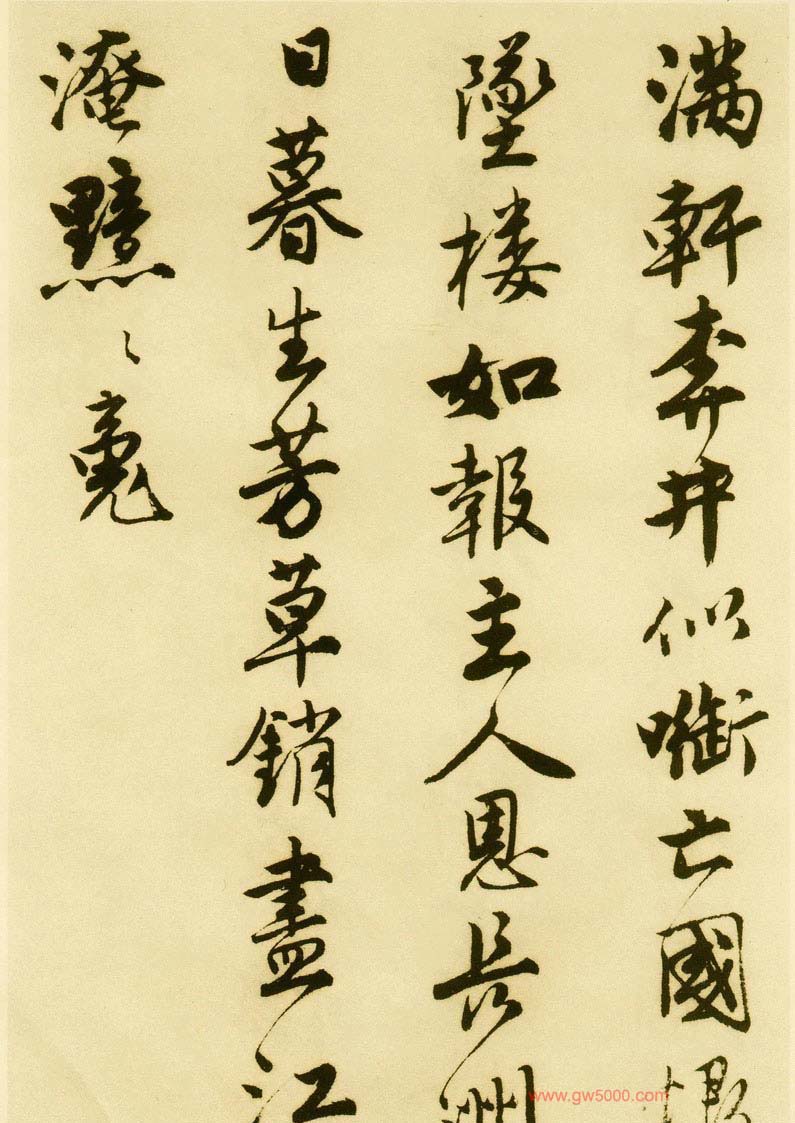 满軒奔井似衘亡國恨
墜楼如報主人恩長洲
日暮生芳草銷盡江
淹黯〻䰟
www.gw5000.com